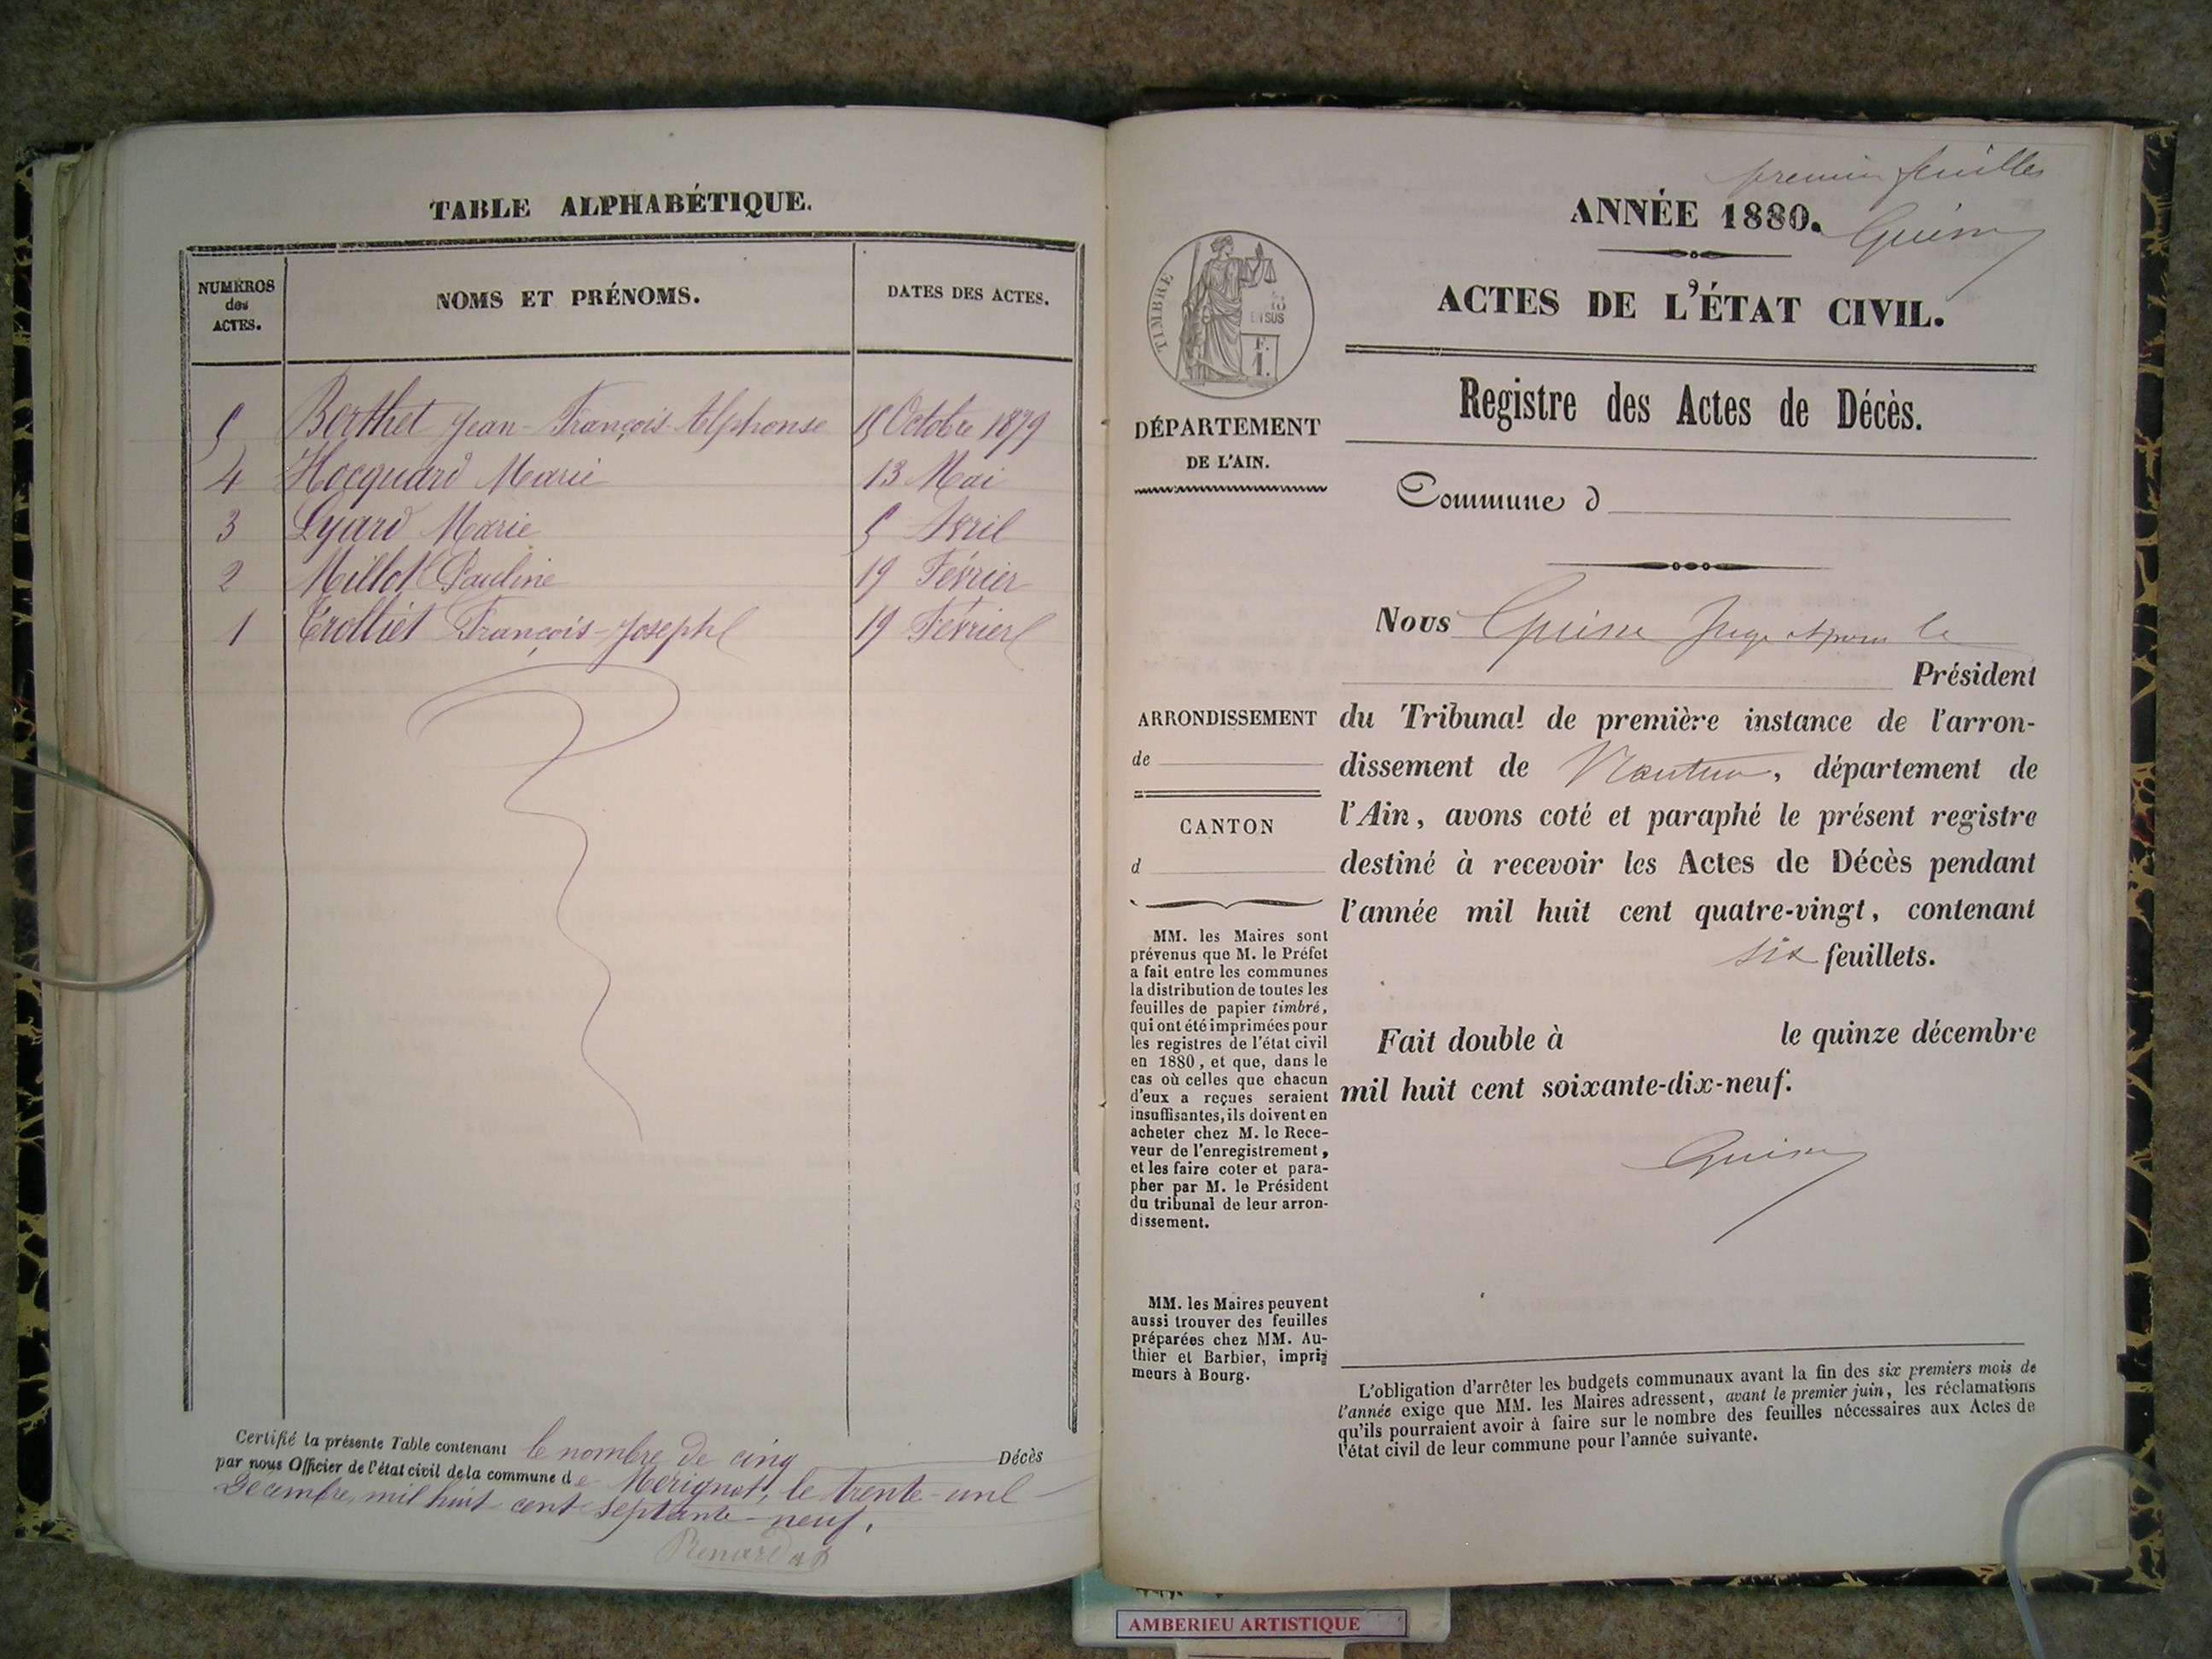 TABLE ALPHABÉTIQUE.
NUMÉROS
des
ACTES.
NOMS ET PRÉNOMS.
DATES DES ACTES.
5 Berthet Jean-François-Alphonse 15 Octobre 1879
4 Hocquard Marie 13 Mai
3 Lyard Marie 5 Avril
2 Millot Pauline 19 Février
1 Trolliet François-Joseph 19 Février
Certifié la présente Table contenant le nombre de cinq Décès
par nous Officier de l'état civil de la commune de Mérignat, le trente-un
Décembre, mil huit cent septante-neuf.
premier feuillet
ANNÉE 1880.
ACTES DE L'ÉTAT CIVIL.
TIMBRE
EN SUS
F.
1.
DÉPARTEMENT
DE L'AIN.
Registre des Actes de Décès.
Commune d
Nous Guine Juge pour le
Président
du Tribunal de première instance de l'arron-
dissement de Nantua, département de
l'Ain, avons coté et paraphé le présent registre
destiné à recevoir les Actes de Décès pendant
l'année mil huit cent quatre-vingt, contenant
six feuillets.
Fait double à le quinze décembre
mil huit cent soixante-dix-neuf.
ARRONDISSEMENT
de
CANTON
d
MM. les Maires sont
prévenus que M. le Préfet
a fait entre les communes
la distribution de toutes les
feuilles de papier timbré,
qui ont été imprimées pour
les registres de l'état civil
en 1880, et que, dans le
cas où celles que chacun
d'eux a reçues seraient
insuffisantes, ils doivent en
acheter chez M. le Rece-
veur de l'enregistrement,
et les faire coter et para-
pher par M. le Président
du tribunal de leur arron-
dissement.
MM. les Maires peuvent
aussi trouver des feuilles
préparées chez MM. Au-
thier et Barbier, impri-
meurs à Bourg.
L'obligation d'arrêter les budgets communaux avant la fin des six premiers mois de
l'année exige que MM. les Maires adressent, avant le premier juin, les réclamations
qu'ils pourraient avoir à faire sur le nombre des feuilles nécessaires aux Actes de
l'état civil de leur commune pour l'année suivante.
AMBERIEU ARTISTIQUE